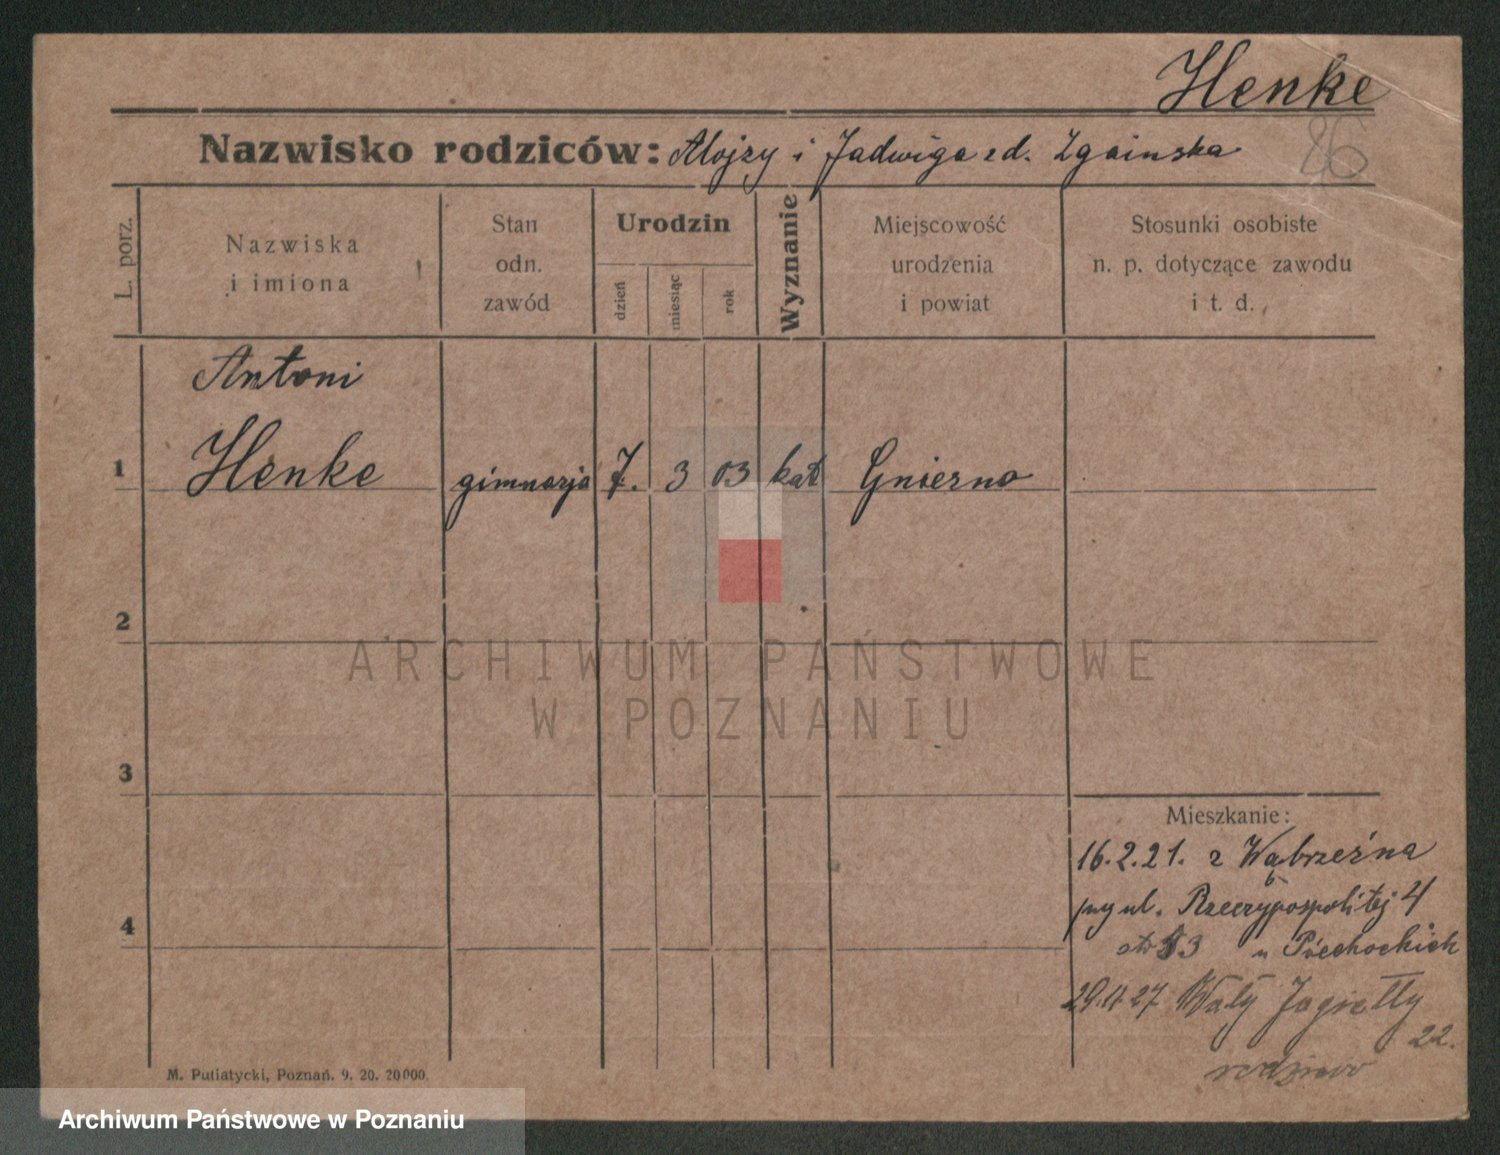 Henke
86
Nazwisko rodziców: Alojzy i Jadwiga zd. Zgainska
L. porz.
Nazwiska
i imiona
Stan
odn.
zawód
Urodzin
dzień
miesiąc
rok
Wyznanie
Miejscowość
urodzenia
i powiat
Stosunki osobiste
n. p. dotyczące zawodu
i t. d.
Antoni
1 Henke gimnazja 7. 3 03 kat Gniezno
2
3
4
Mieszkanie:
16.2.21. z Wąbrzeźna
przy ul. Rzeczypospolitej 4
u Piechockich
29.4.27 Wały Jagiełły
22.
M. Putiatycki, Poznań. 9. 20. 20000.
ARCHIWUM PAŃSTWOWE
W POZNANIU
Archiwum Państwowe w Poznaniu